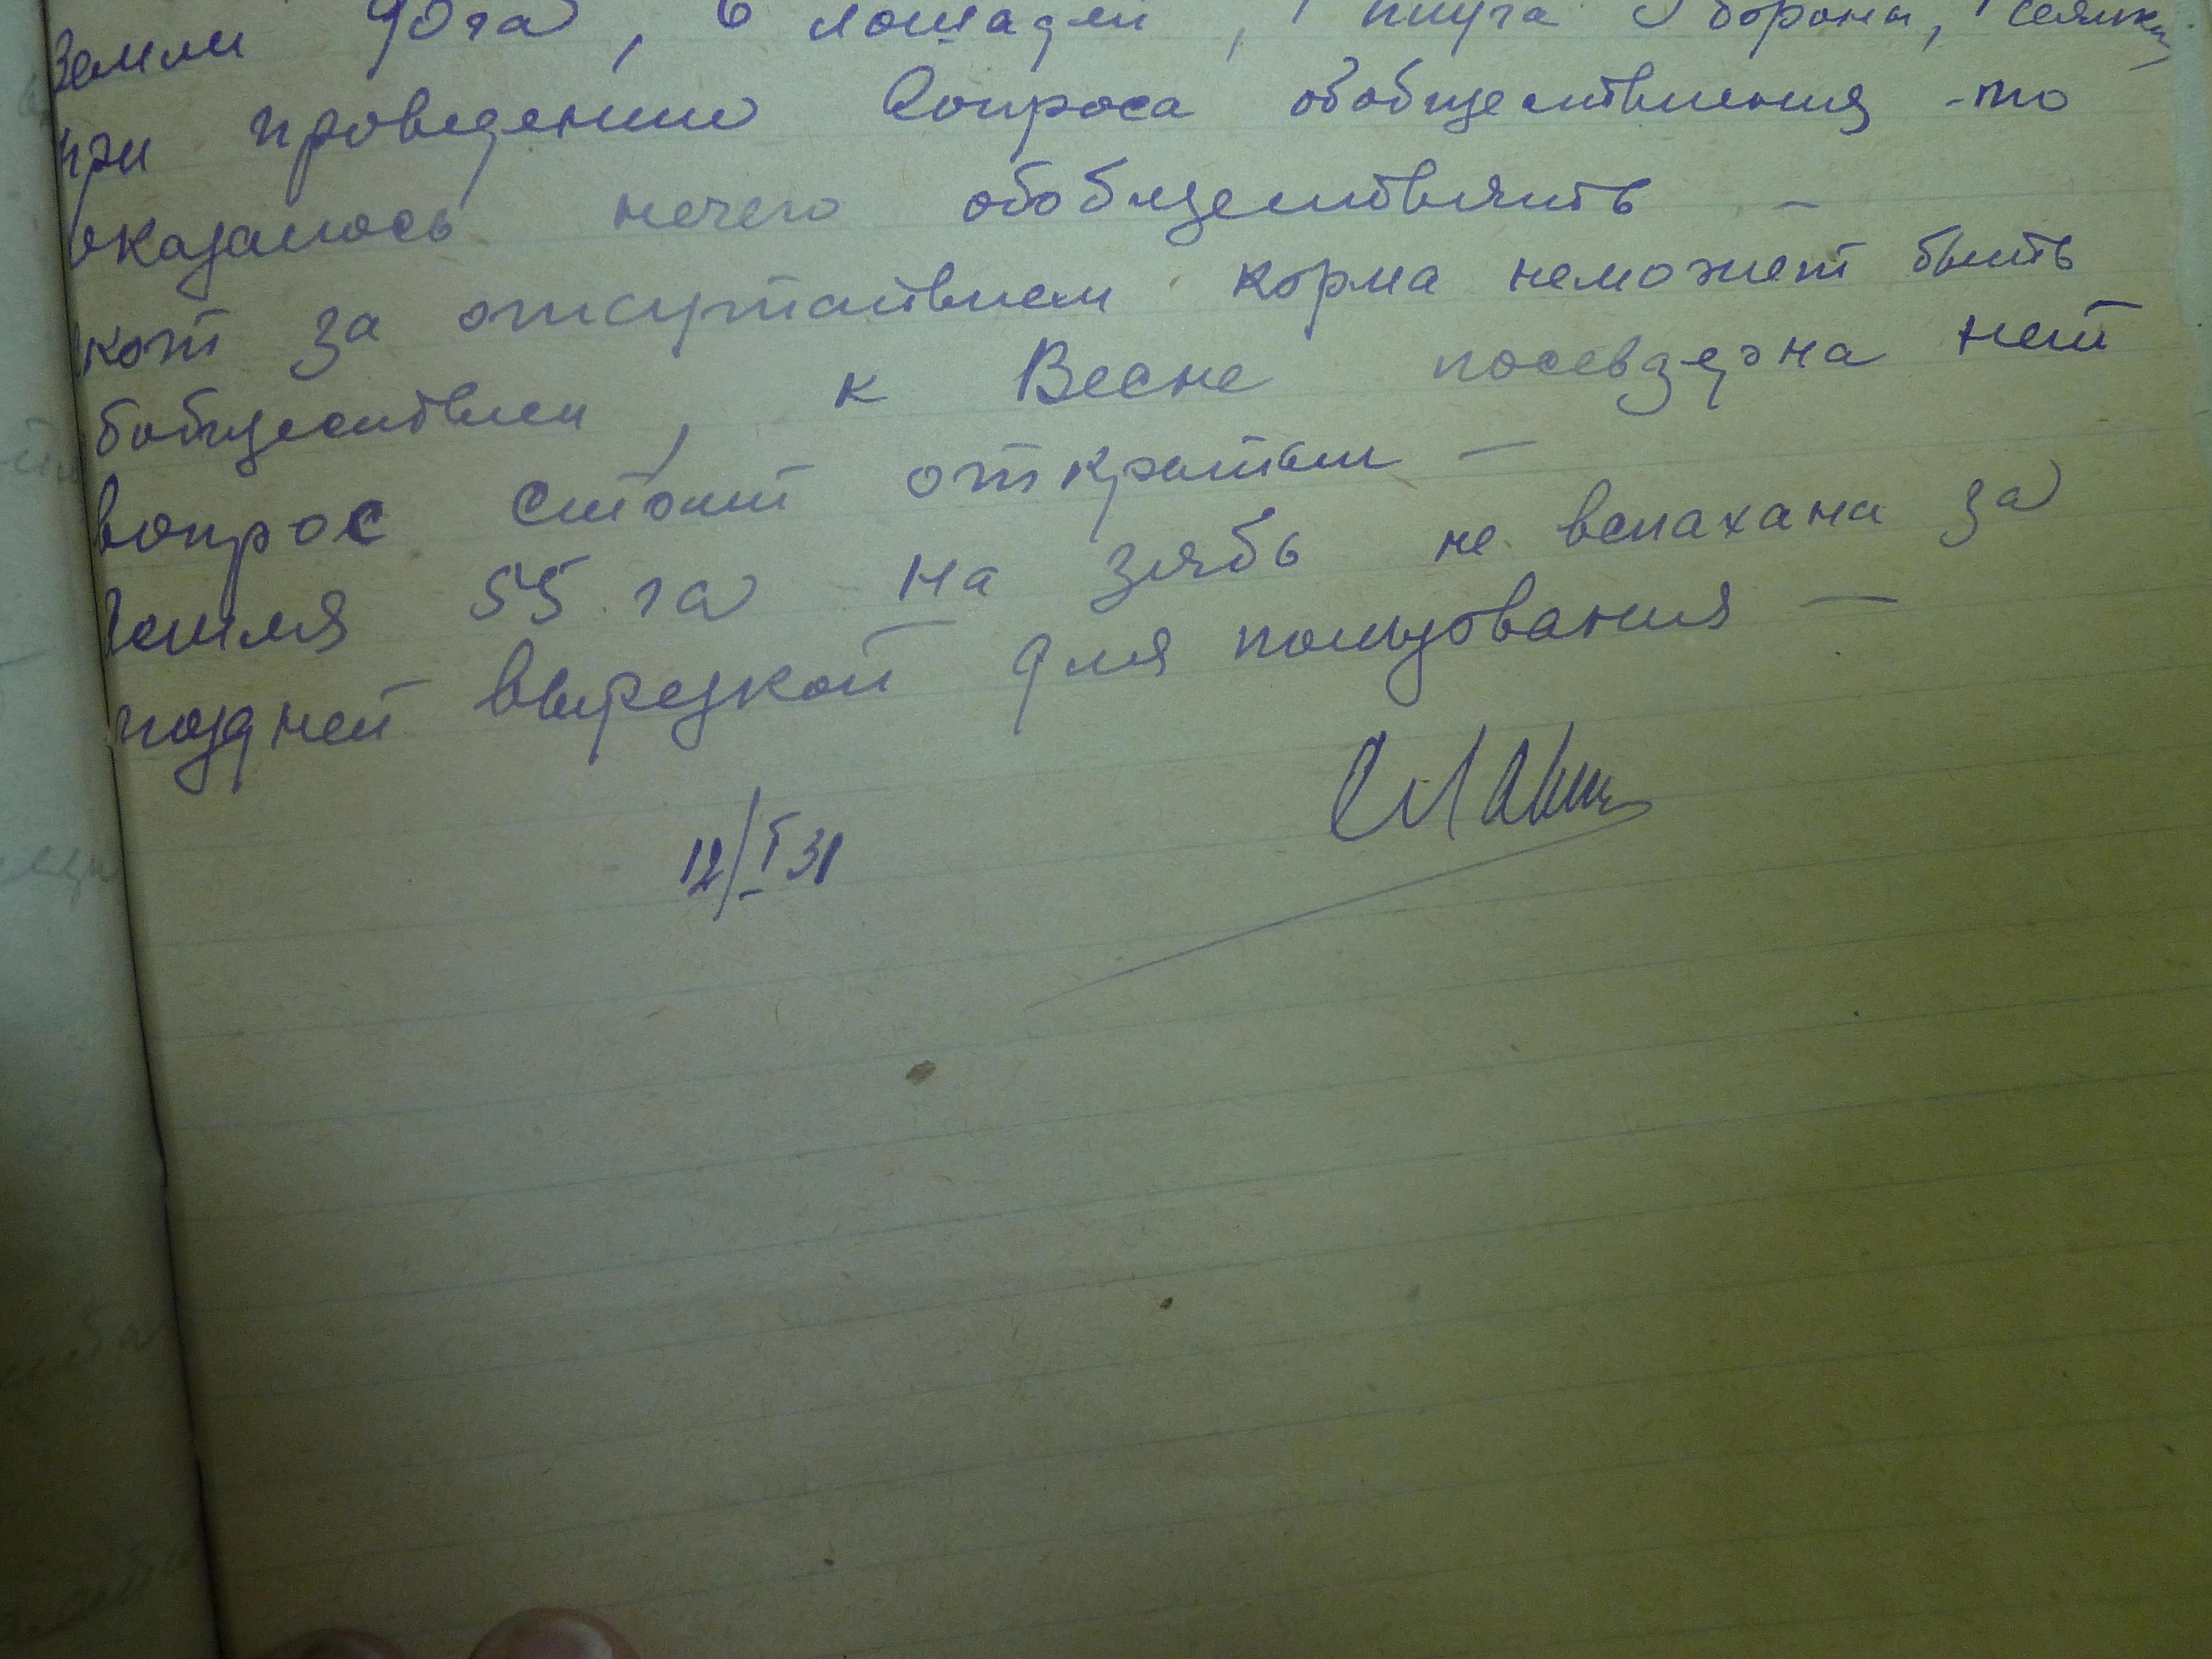 земли 90 га, 6 лошадей, плуга бороны, сеялки
при проведении вопроса обобществления - то
оказалось нечего обобществлять –
скот за отсутствием корма неможет быть
обобществлен, к Весне посевзерна нет
вопрос стоит открытым –
земля 55 га на зябь не вспахана за
поздней вырезкой для пользования –
12/I 31